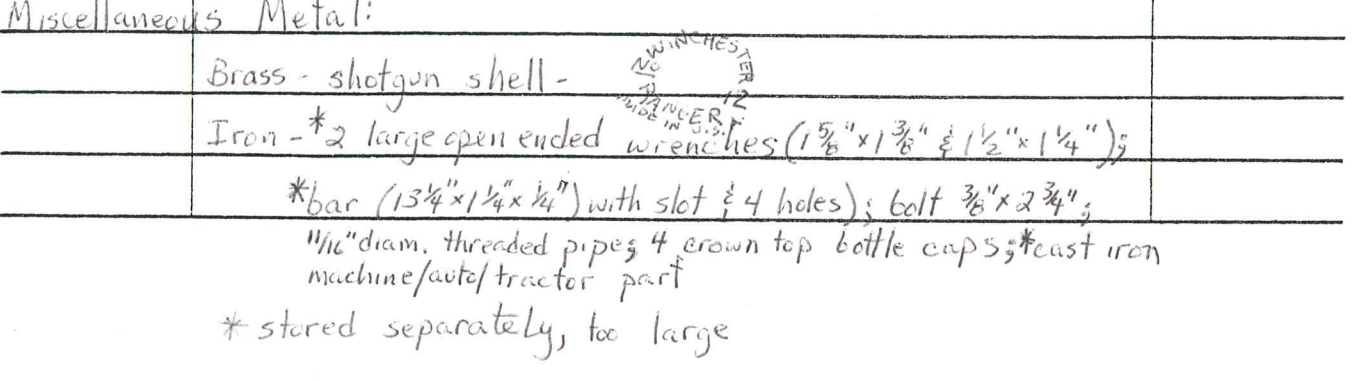 Miscellaneous Metal:
Brass - shotgun shell - WINCHESTER No 12 RANGER MADE IN U.S.A.
Iron - *2 large open ended wrenches (1 5/8" x 1 3/8" & 1 1/2" x 1 1/4");
*bar (13 1/4" x 1 1/4" x 1/4") with slot & 4 holes); bolt 3/8" x 2 3/4";
11/16" diam. threaded pipe; 4 crown top bottle caps; *cast iron
machine/auto/tractor part
* stored separately, too large